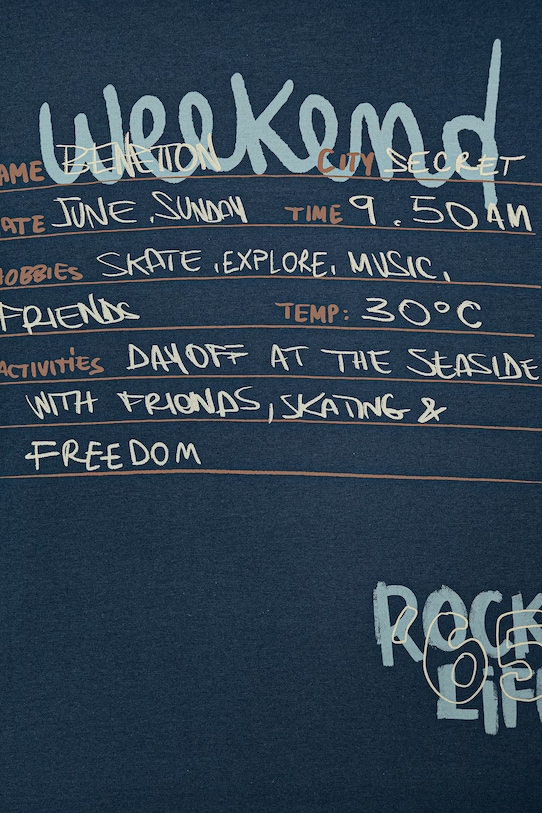 Weekend
AME BENETTON CITY SECRET
ATE JUNE, SUNDAY TIME 9.50 AM
HOBBIES SKATE, EXPLORE, MUSIC,
FRIENDS TEMP: 30°C
ACTIVITIES DAYOFF AT THE SEASIDE
WITH FRIONDS, SKATING &
FREEDOM
ROCK
'65
LIF